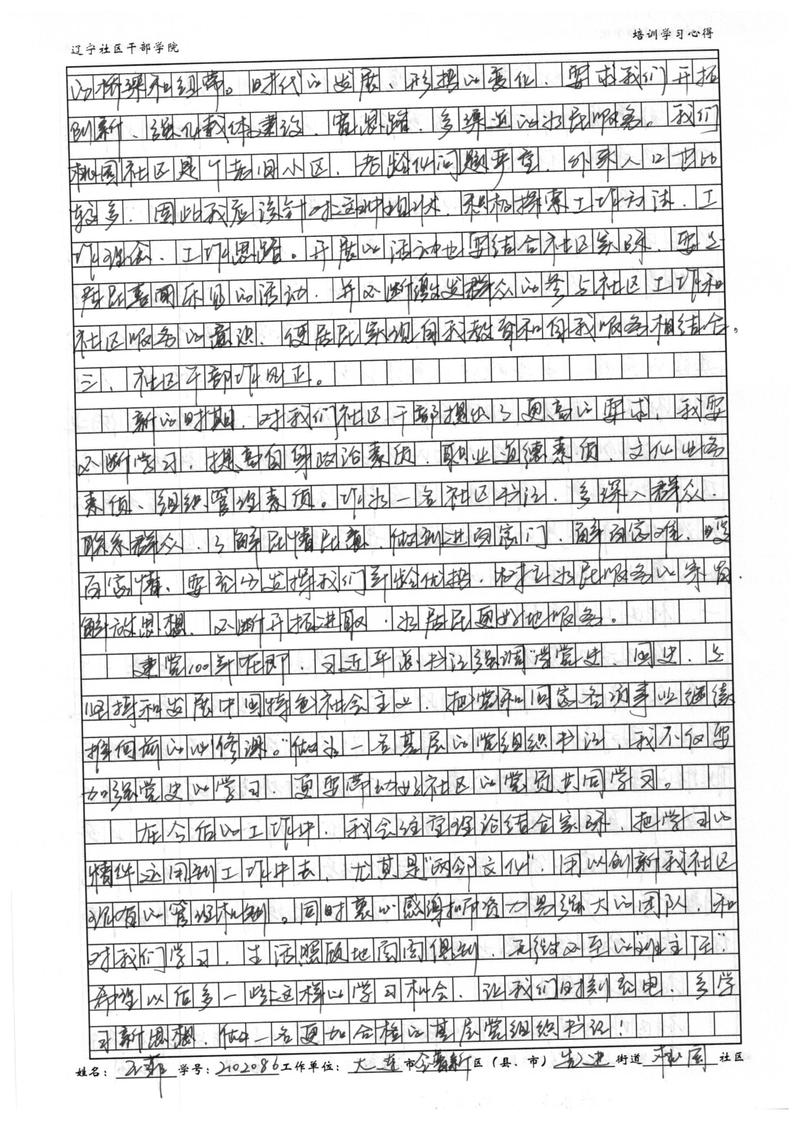 辽宁社区干部学院 培训学习心得
的桥梁和纽带。时代的发展、形势的变化、要求我们开拓
创新、强化载体建设、宽思路、多渠道的为民服务。我们
桃园社区是个老旧小区，老龄化问题严重，外来人口也比
较多，因此我应该针对这种现状，积极探索工作方法、工
作理念、工作思路。开展的活动也要结合社区实际，要是
居民喜闻乐见的活动，并不断激发群众的参与社区工作和
社区服务的意识，使居民实现自我教育和自我服务相结合。
三、社区干部作用正。
新的时期，对我们社区干部提出了更高的要求，我要
不断学习，提高自身政治素质、职业道德素质、文化业务
素质、组织管理素质。作为一名社区书记，多深入群众、
联系群众，了解民情民意，做到进百家门，解百家难，暖
百家情，要充分发挥我们年龄优势，树立为民服务的
解放思想，不断开拓进取，为居民更好地服务。
建党100年在即，习近平总书记强调“学党史、国史，是
坚持和发展中国特色社会主义，把党和国家各项事业继续
推向前的必修课。”做为一名基层的党组织书记，我不仅要
加强党史的学习，更要带动好社区的党员共同学习。
在今后的工作中，我会注重理论结合实际，把学习的
精件运用到工作中去，尤其是“两邻文化”，用以创新我社区
现有的管理机制。同时衷心感谢师资力量强大的团队，和
对我们学习、生活照顾地面面俱到、无微不至的“班主任”
希望以后多一些这样的学习机会，让我们时刻充电，多学
习新思想，做一名更加合格的基层党组织书记！
姓名： 学号：2102086 工作单位：大连市金普新区（县、市）先进街道桃园社区